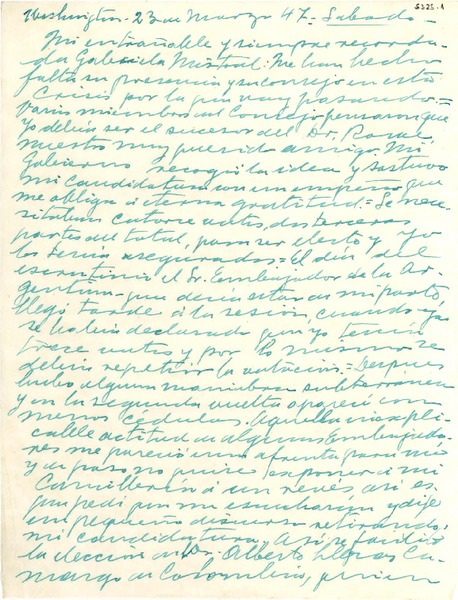 5325.1
Washington - 23 de Marzo 47 - Sabado -
Mi entrañable y siempre recorda-
da Gabriela Mistral: Me han hecho
falta su presencia y su consejo en esta
crisis por la que voy pasando =
Varios miembros del Consejo pensaron que
yo debía ser el sucesor del Dr. Rowe
nuestro muy querido amigo. Mi
Gobierno recogió la idea y sostuvo
mi candidatura con un empeño que
me obliga a eterna gratitud = Se nece-
sitaban catorce votos, dos terceras
partes del total, para ser electo y yo
los tenía asegurados = El día del
escrutinio el Sr. Embajador de la Ar-
gentina que decía estar de mi parte
llegó tarde a la sesión, cuando ya
se había declarado que yo tenía
trece votos y por lo mismo se
debía repetir la votación = Después
hubo alguna maniobra subterránea
y en la segunda vuelta aparecí con
menos cédulas. Aquella inexpli-
cable actitud de algunos Embajado-
res me pareció una afrenta para mí
y de paso no quise exponer a mi
Cancillería a un revés así es
que pedí que me escucharan y dije
un pequeño discurso retirando
mi candidatura. Así se facilitó
la elección del Dr. Alberto Lleras Ca-
margo de Colombia, quien